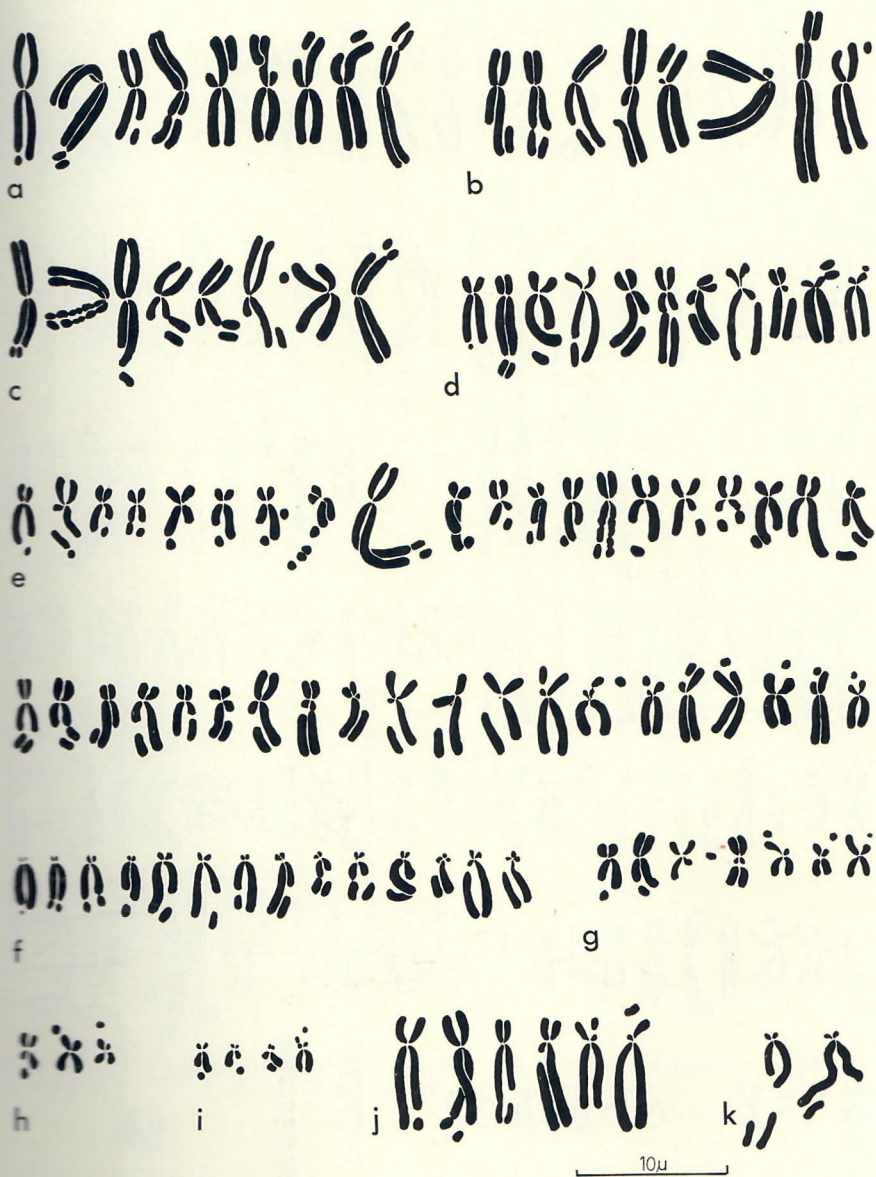 a
b
c
d
e
f
g
h
i
j
k
10µ